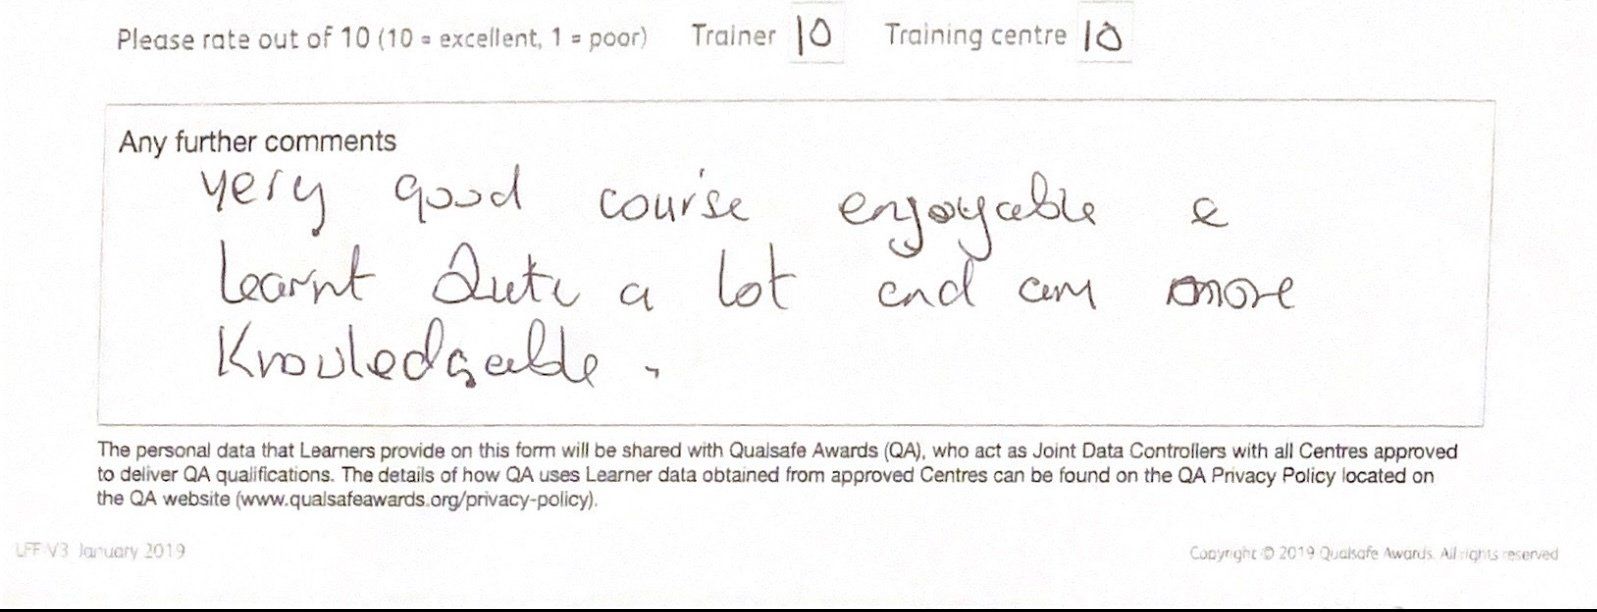 Please rate out of 10 (10 = excellent, 1 = poor) Trainer 10 Training centre 10
Any further comments
very good course enjoyable &
learnt Quite a lot and am more
Knowledgable.
The personal data that Learners provide on this form will be shared with Qualsafe Awards (QA), who act as Joint Data Controllers with all Centres approved
to deliver QA qualifications. The details of how QA uses Learner data obtained from approved Centres can be found on the QA Privacy Policy located on
the QA website (www.qualsafeawards.org/privacy-policy).
LFF V3 January 2019 Copyright © 2019 Qualsafe Awards. All rights reserved